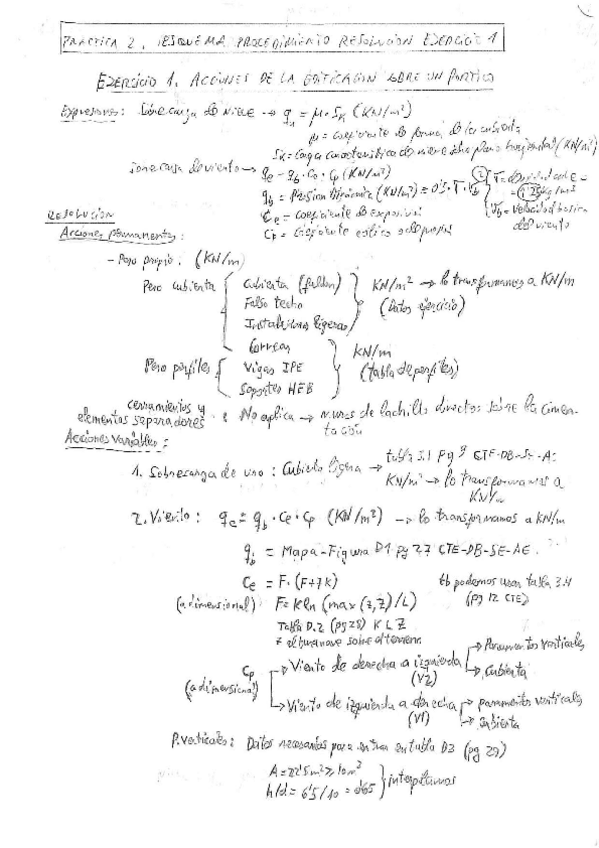 PRACTICA 2. ESQUEMA PROCEDIMIENTO RESOLUCION EJERCICIO 1
EJERCICIO 1. ACCIONES DE LA EDIFICACION SOBRE UN PORTICO
Expresiones: Sobrecarga de nieve → q = μ · Sk (KN/m²)
μ = coeficiente de forma de la cubierta
Sk = carga caracteristica de nieve sobre plano horizontal (KN/m²)
sobrecarga de viento → qe = qb · Ce · Cp (KN/m²)
qb = Presion dinámica (KN/m²) = 0'5 · δ · Vb²
{ δ = densidad aire = 1'25 kg/m³
Vb = velocidad basica del viento
Ce = coeficiente de exposicion
Cp = coeficiente eólico o de presion
RESOLUCION
Acciones permanentes:
- Peso propio. (KN/m)
Peso cubierta { Cubierta (faldon)
Falso techo
Instalaciones ligeras } KN/m² → lo transformamos a KN/m
(Datos ejercicio)
Correas
Peso perfiles { Vigas IPE
Soportes HEB } KN/m
(tabla de perfiles)
cerramientos y
elementos separadores : No aplica → muros de ladrillo directos sobre la cimen-
tación
Acciones Variables:
1. Sobrecarga de uso: Cubierta ligera → tabla 3.1 Pg 9 CTE-DB-SE-AE
KN/m² → lo transformamos a
KN/m
2. Viento: qe = qb · Ce · Cp (KN/m²) → lo transformamos a KN/m
qb = Mapa - Figura D1 pg 27 CTE-DB-SE-AE.
Ce = F · (F+7K) tb podemos usar tabla 3.4
(pg 12 CTE)
(adimensional) F = K ln (max (z,Z)/L)
Tabla D.2 (pg 28) K L Z
z altura nave sobre el terreno
Cp
(adimensional)
→ Viento de derecha a izquierda (V2) → Paramentos verticales
→ Cubierta
→ Viento de izquierda a derecha (V1) → paramentos verticales
→ Cubierta
P. verticales: Datos necesarios para entrar en tabla D3 (pg 29)
A = 22'5 m² > 10 m²
h/d = 6'5/10 = 0'65 } interpolamos